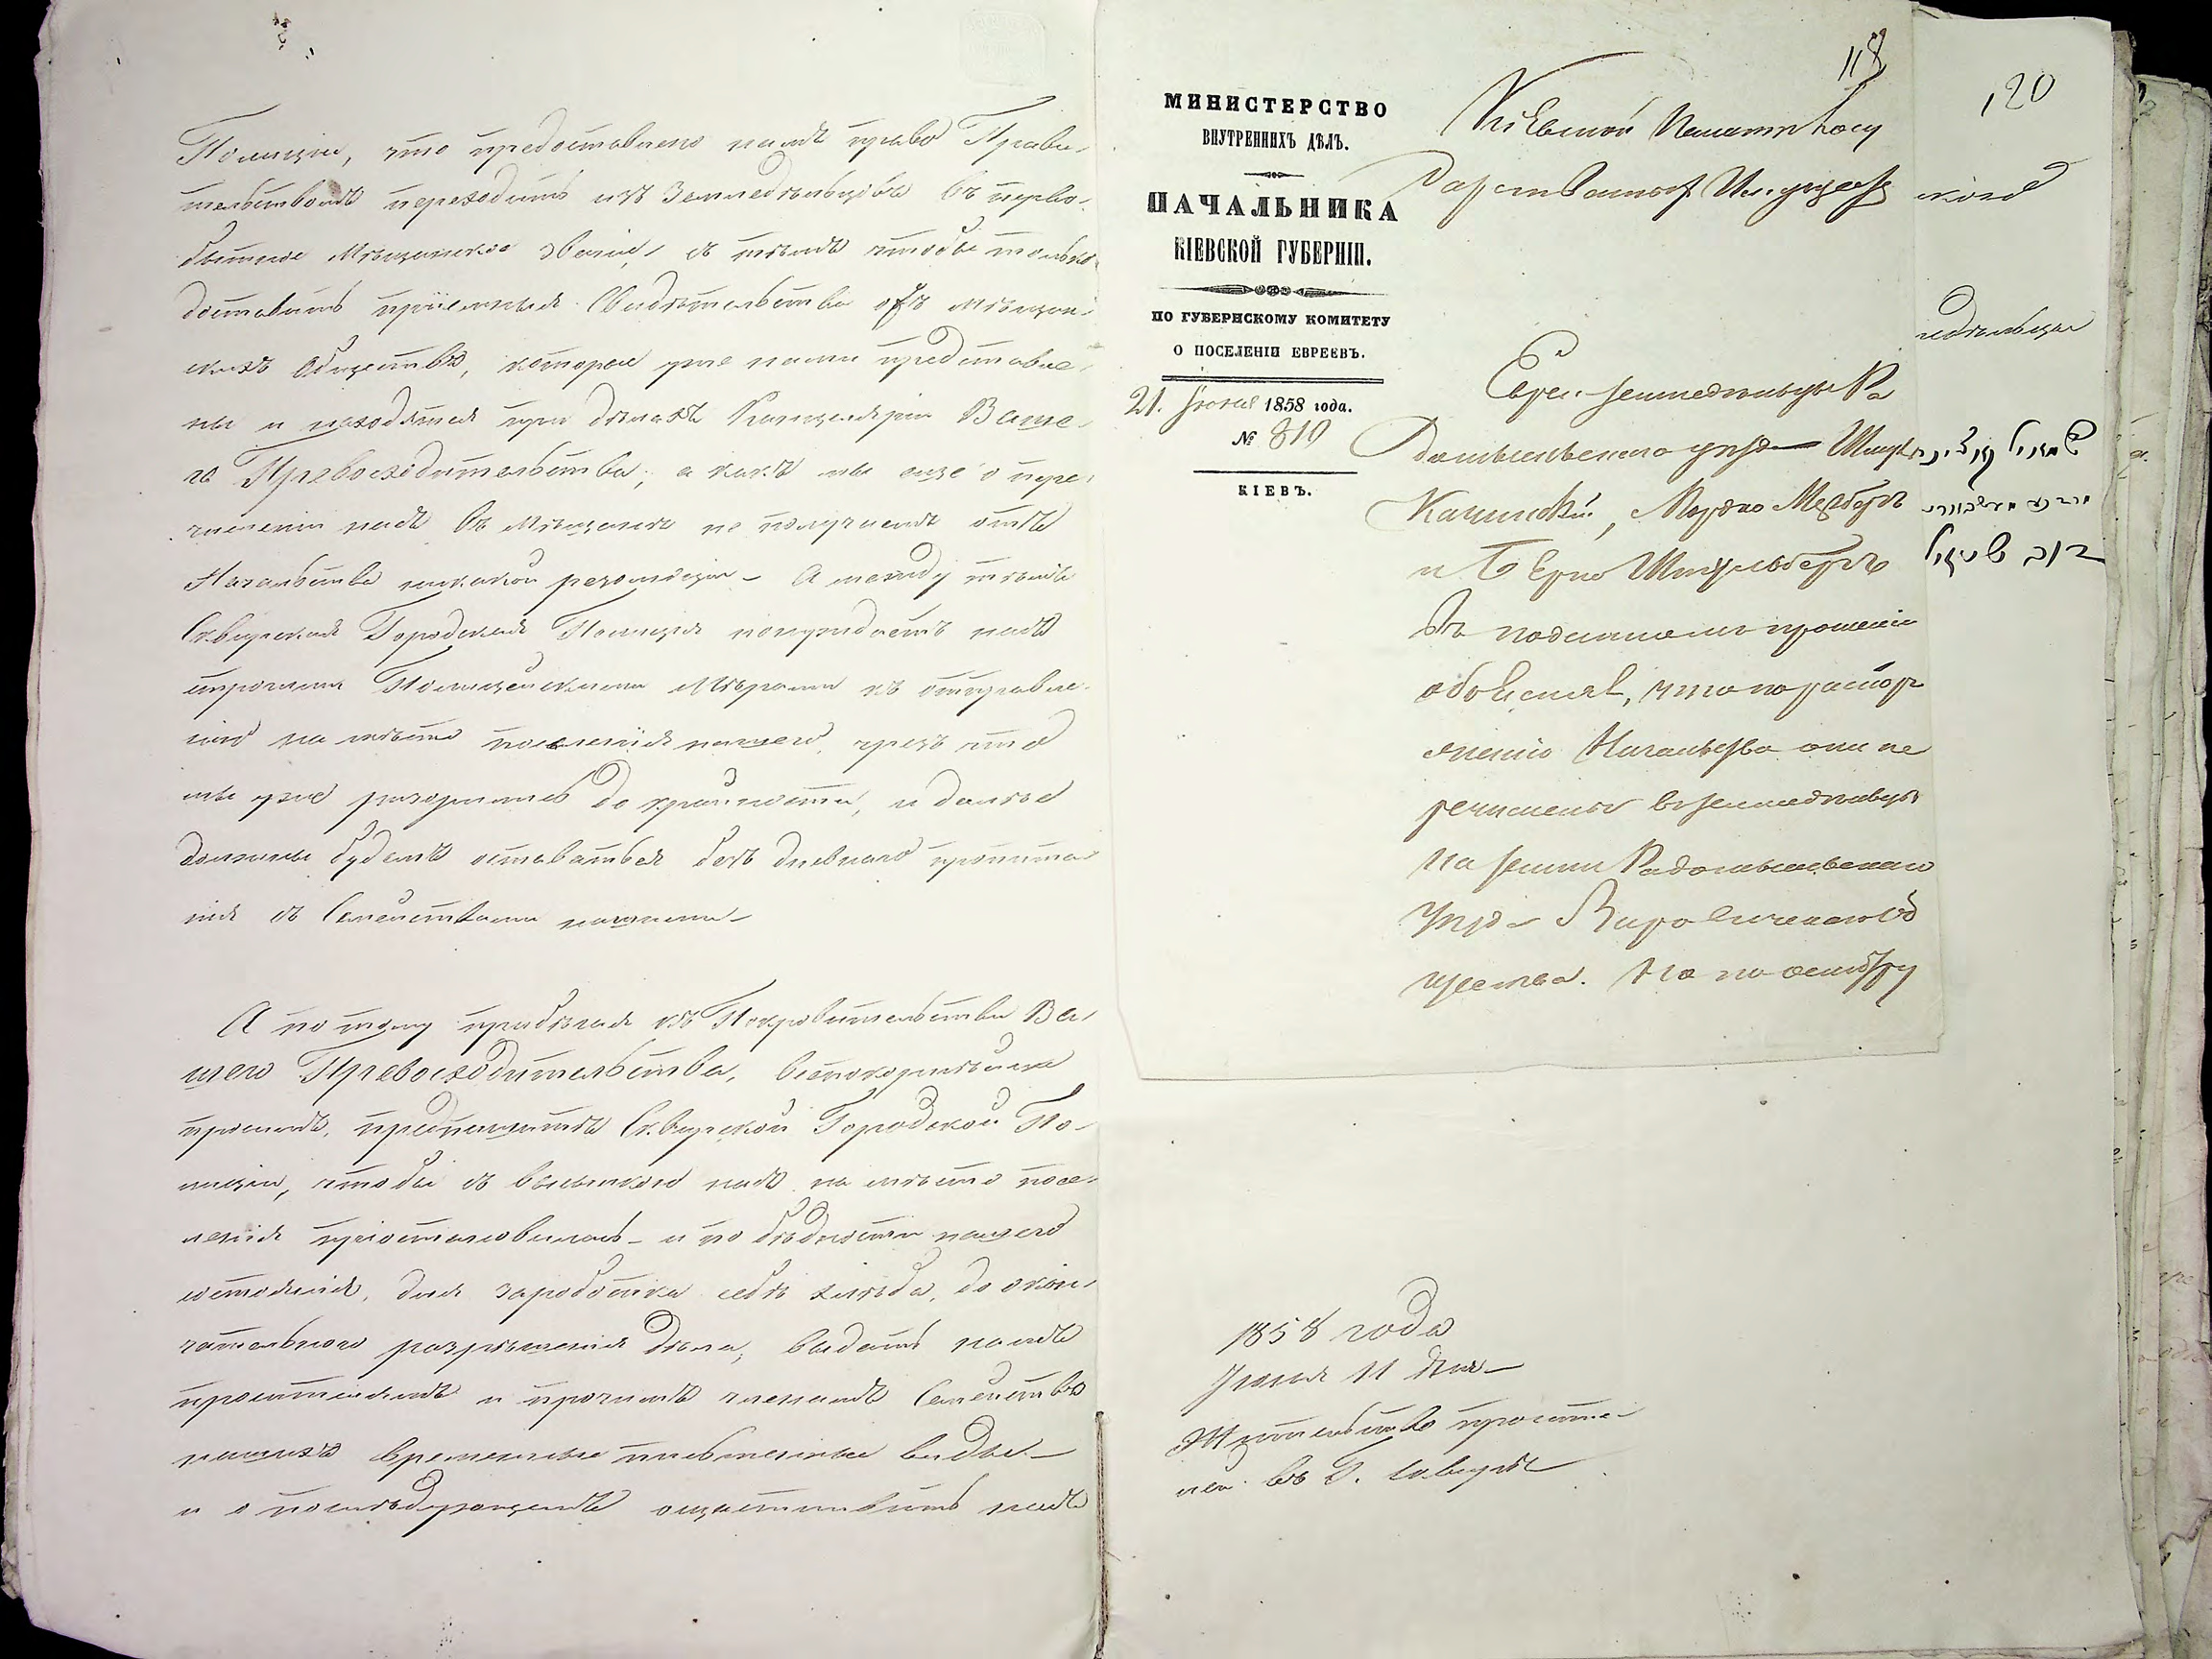 Полиціи, что предоставлено намъ право Прави-
тельствомъ переходить изъ Земледѣльцевъ въ перво-
бытное Мѣщанское званіе, съ тѣмъ чтобы только
доставить пріемныя Свидѣтельства отъ мѣщан-
скихъ Обществъ, которые уже нами представле-
ны и находятся при дѣлахъ Канцеляріи Ваше-
го Превосходительства; а какъ мы еще о пере-
численіи насъ въ Мѣщане не получаемъ отъ
Начальства никакой резолюціи – А между тѣмъ
Сквирская Городская Полиція понуждаетъ насъ
строгими Полицейскими Мѣрами къ отправле-
нію на мѣсто поселенія нашего, чрезъ что
мы уже разорились до крайности, и далѣе
должны будемъ оставаться безъ дневнаго пропита-
нія съ Семействами нашими –
А по тому прибѣгая къ Покровительству Ва-
шего Превосходительства, всепокорнѣйше
просимъ, предписать Сквирской Городской По-
лиціи, чтобы съ высылкою насъ на мѣсто посе-
ленія пріостановилась – и по бѣдности нашего
состоянія, для заработка себѣ хлѣба, до окон-
чательнаго разрѣшенія дѣла, выдать намъ
просителямъ и прочимъ членамъ Семействъ
нашихъ временные письменные виды –
и о послѣдующемъ осчастливить насъ
118
120
МИНИСТЕРСТВО
ВНУТРЕННИХЪ ДѢЛЪ.
НАЧАЛЬНИКА
КІЕВСКОЙ ГУБЕРНІИ.
ПО ГУБЕРНСКОМУ КОМИТЕТУ
О ПОСЕЛЕНІИ ЕВРЕЕВЪ.
21. Іюня 1858 года.
№ 810
КІЕВЪ.
Кіевской Палатѣ Госу
дарственныхъ Имуществ
Евреи земледѣльцы Ра
домысльскаго уѣзда
Мордко
и Берко Шпильбергъ
въ поданномъ прошеніи
объяснял, что по распор
яженію Начальства они пе
речислены въ земледѣльцы
на земли Радомысльскаго
уѣзда
щества. Но по
1858 года
Іюня 11 дня –
Жительство просите-
лей въ Г. Сквирѣ